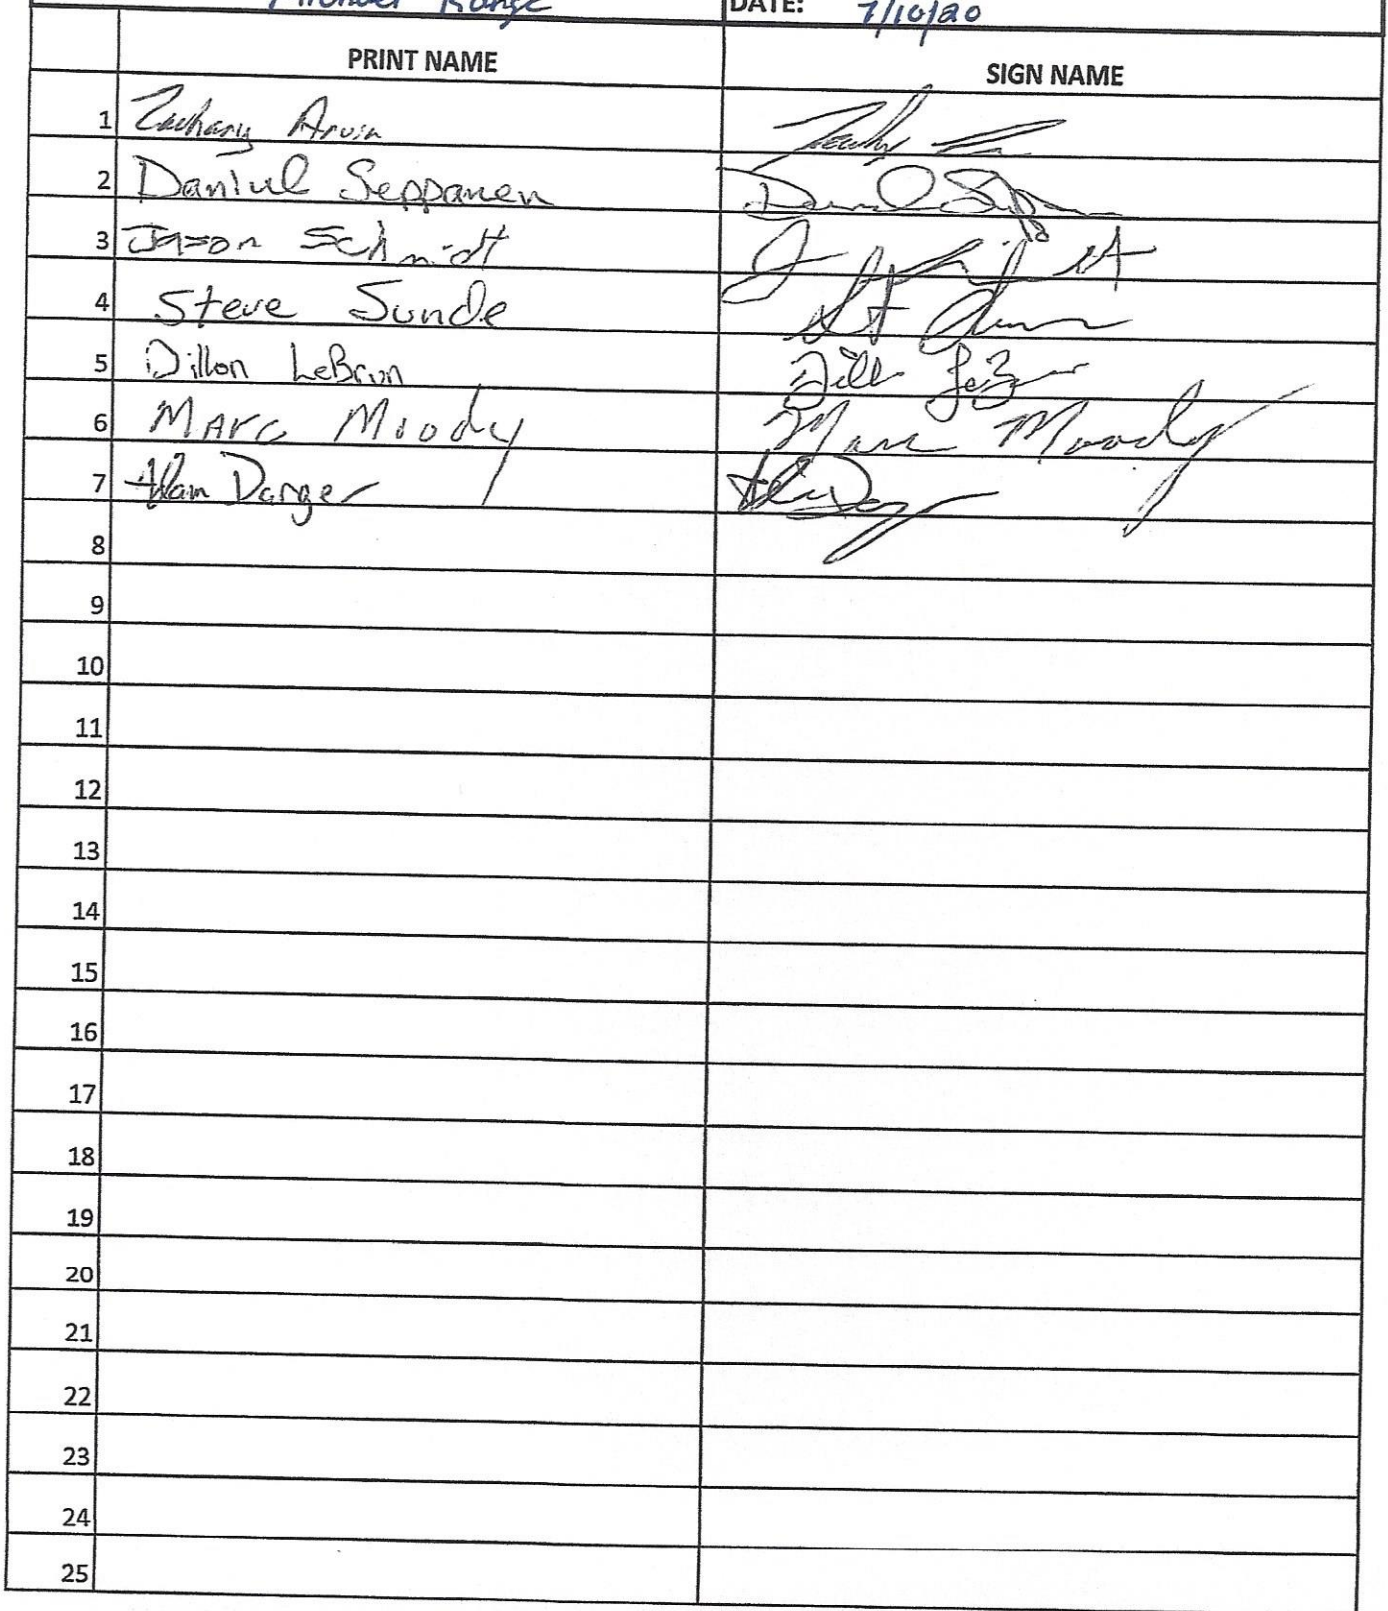 Michael Range DATE: 7/10/20
PRINT NAME SIGN NAME
1 Zachary Arvin
2 Daniel Seppanen Daniel Seppanen
3 Jason Schmidt
4 Steve Sunde
5 Dillon LeBrun
6 Marc Moody Marc Moody
7 Alan Darger
8
9
10
11
12
13
14
15
16
17
18
19
20
21
22
23
24
25